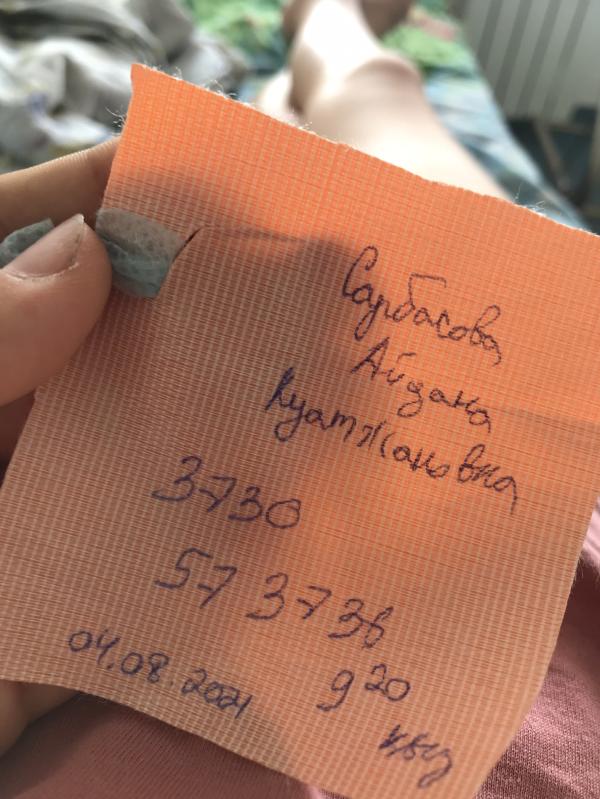 Сарбасова
Айдана
Куатжановна
3730
57 37 38
04.08.2021 9²⁰
қыз